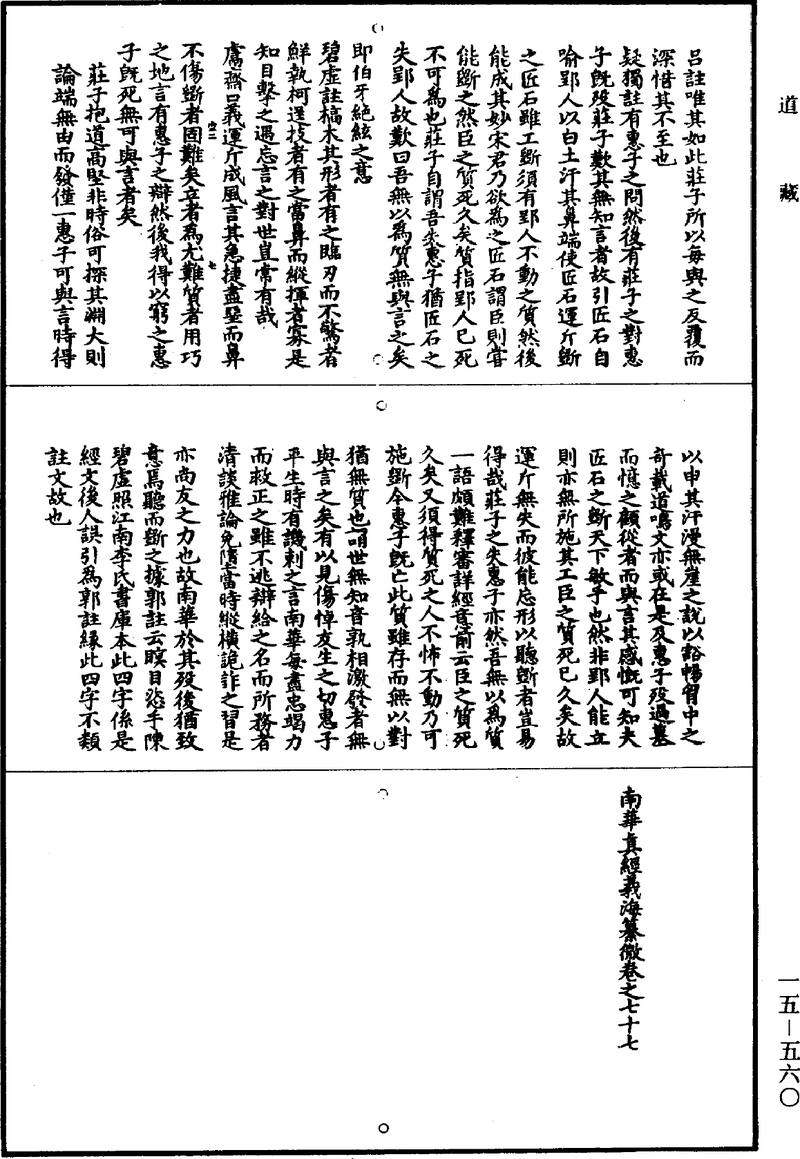 道藏
呂註唯其如此莊子所以每與之反覆而
深惜其不至也
疑獨註有惠子之問然後有莊子之對惠
子旣歿莊子歎其無知言者故引匠石自
喻郢人以白土汙其鼻端使匠石運斤斲
之匠石雖工斲須有郢人不動之質然後
能成其妙宋君乃欲為之匠石謂臣則甞
能斲之然臣之質死久矣質指郢人已死
不可為也莊子自謂吾失惠子猶匠石之
失郢人故歎曰吾無以為質無與言之矣
即伯牙絕絃之意
碧虛註槁木其形者有之臨刃而不驚者
鮮執柯逞技者有之當鼻而縱揮者寡是
知目擊之遇忘言之對世豈常有哉
鬳齋口義運斤成風言其急捷盡堊而鼻
不傷斲者固難矣立者為尤難質者用巧
之地言有惠子之辯然後我得以窮之惠
子旣死無可與言者矣
莊子抱道高堅非時俗可探其淵大則
論端無由而發僅一惠子可與言時得
以申其汗漫無崖之說以豁暢胷中之
奇載道鳴文亦或在是及惠子歿過墓
而憶之顧從者而與言其感慨可知夫
匠石之斲天下敏手也然非郢人能立
則亦無所施其工臣之質死已久矣故
運斤無失而彼能忘形以聽斲者豈易
得哉莊子之失惠子亦然吾無以為質
一語頗難釋審詳經意前云臣之質死
久矣又須得質死之人不怖不動乃可
施斲今惠子旣亡此質雖存而無以對
猶無質也唄世無知音孰相激發者無
與言之矣有以見傷悼友生之切惠子
平生時有譏刺之言南華每盡忠竭力
而救正之雖不逃辯給之名而所務者
清談雅論免墮當時縱橫詭詐之習是
亦尚友之力也故南華於其歿後猶致
意焉聽而斲之據郭註云瞑目恣手陳
碧虛照江南李氏書庫本此四字係是
經文後人誤引為郭註緣此四字不類
註文故也
南華真經義海纂微卷之七十七
一五－五六〇